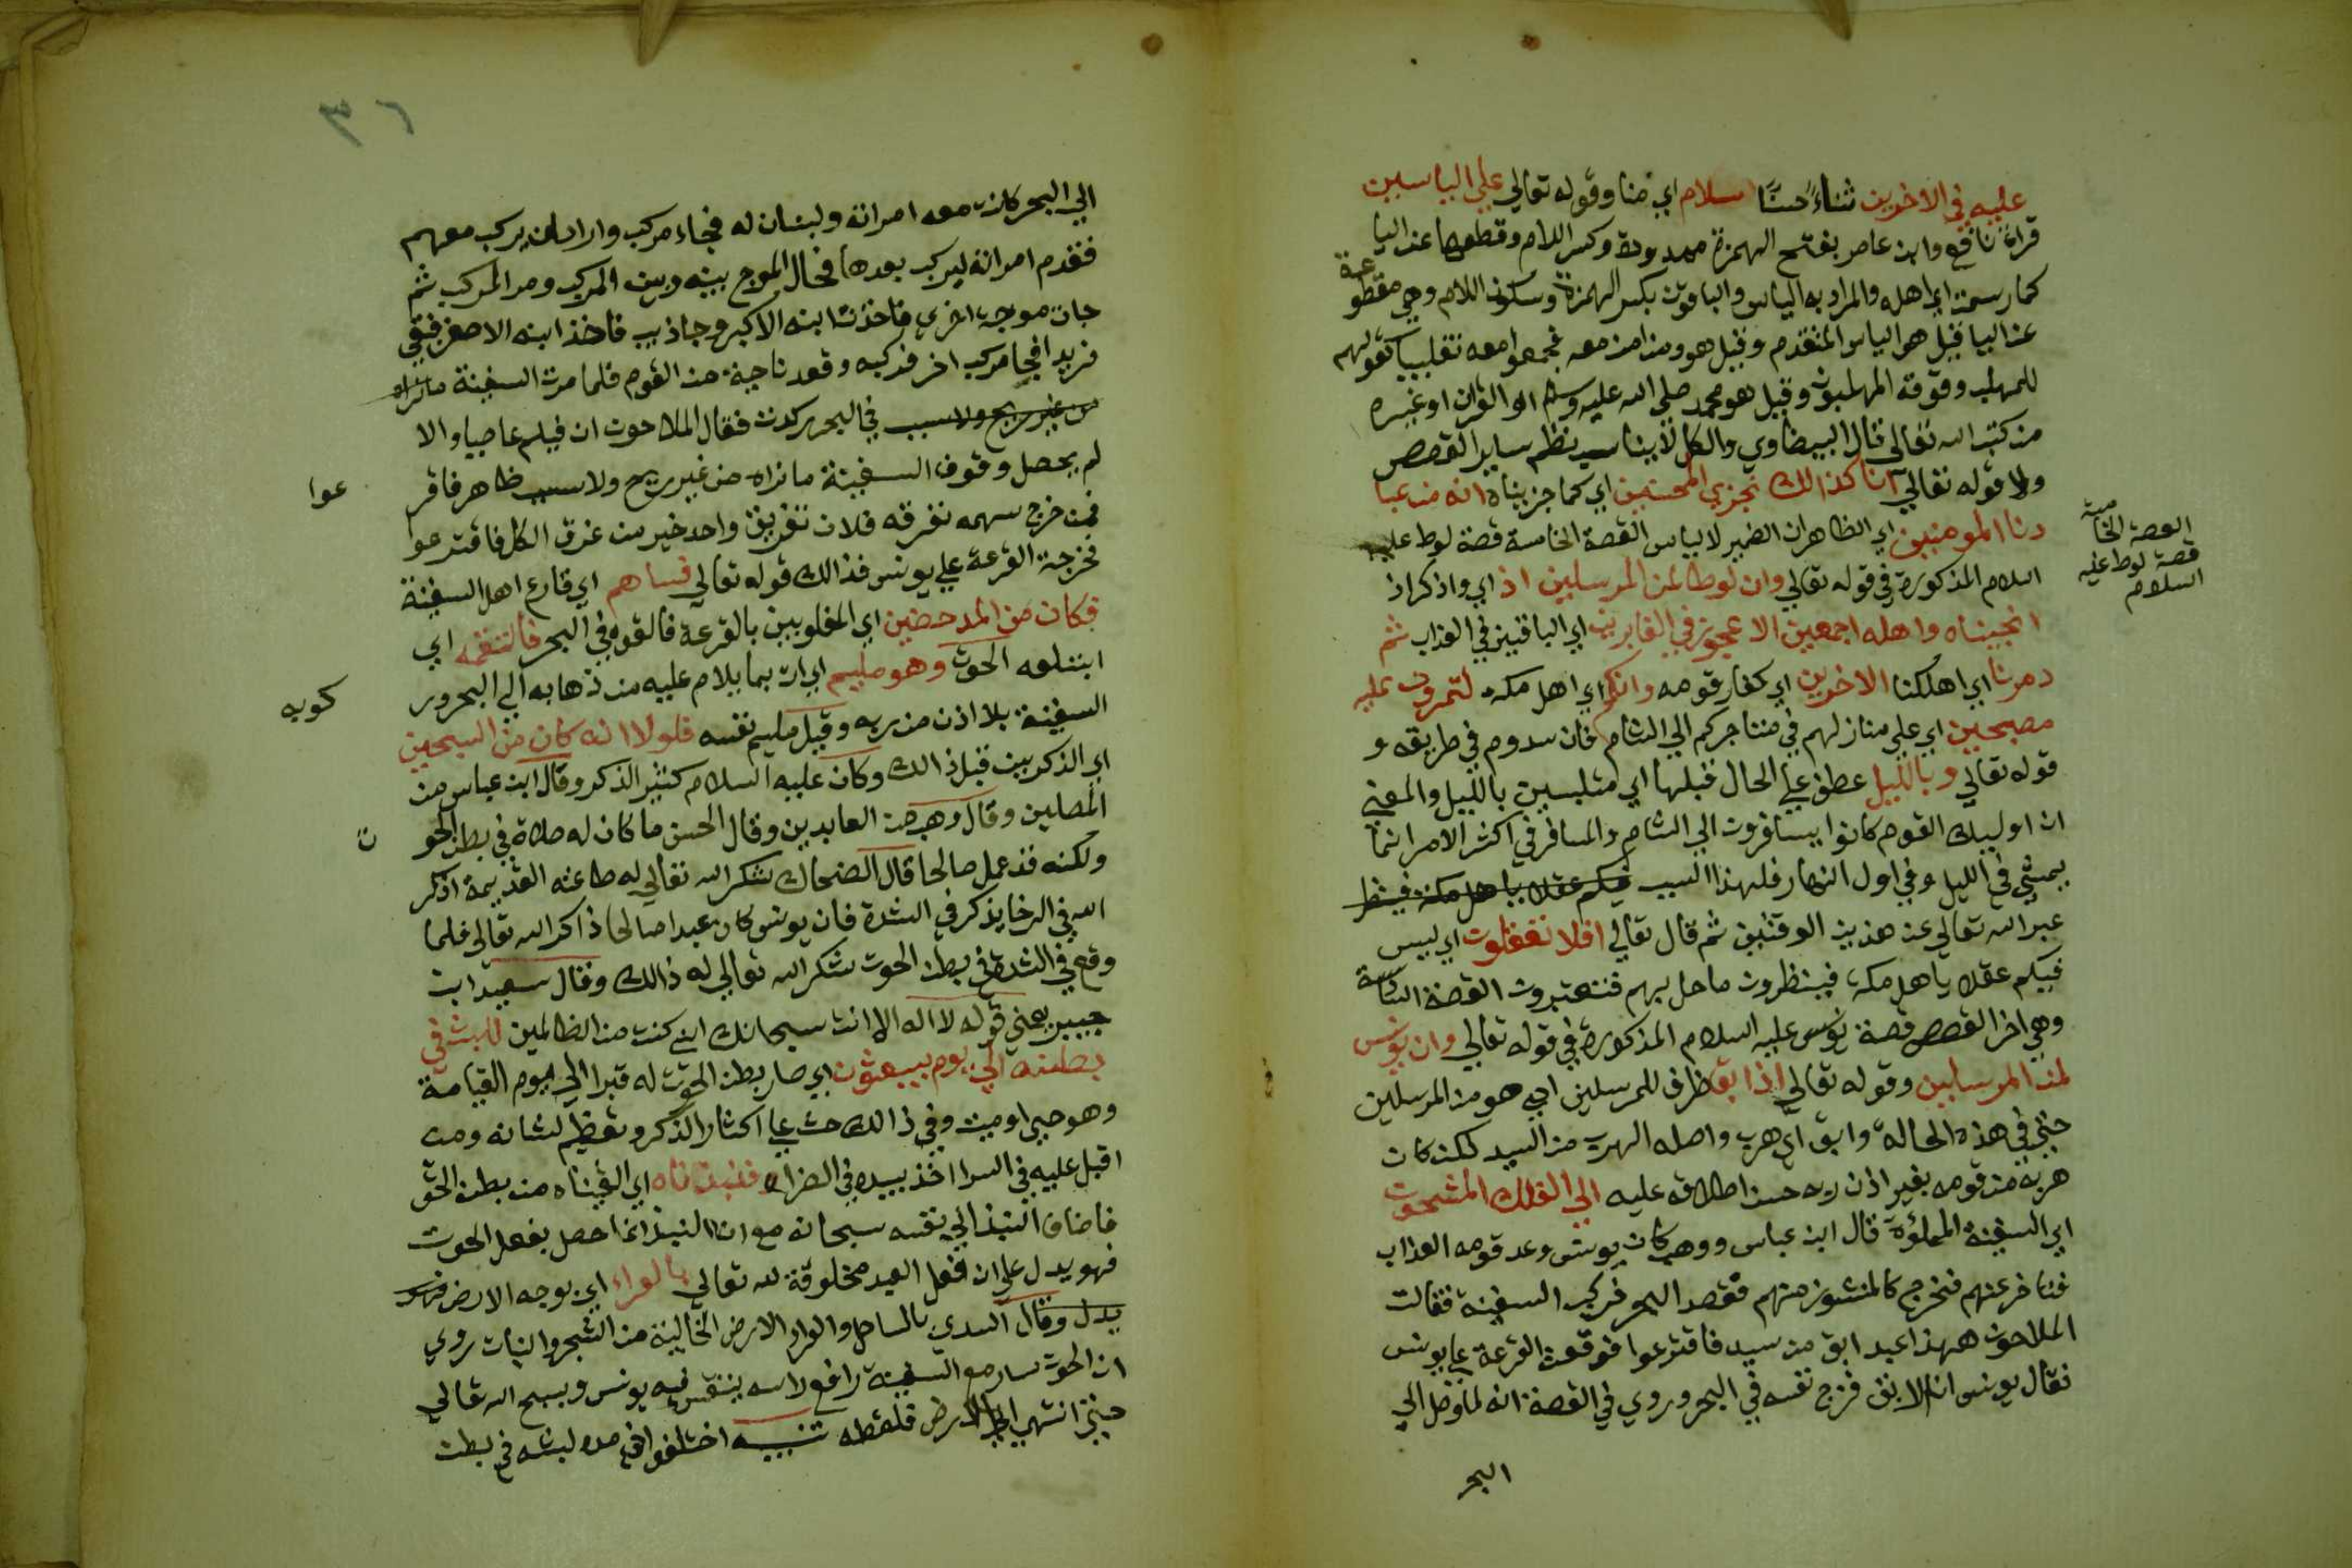 عليه في الاخرين ثناءً حسنًا سلام اي منا وقوله تعالي علي الياسين
قراة نافع وابن عامر بفتح الهمزة ممدودة وكسر اللام وقطعها عن اليا
كما رسمت اي اهله والمراد به الياس والباقون بكسر الهمزة وسكون اللام وهي مقطوعة
عن اليا قيل هو الياس المتقدم وقيل هو ومن امن معه فجمعوا معه تغليبا كقولهم
للمهلب وقومه المهلبون وقيل هو محمد صلي الله عليه وسلم او القران او غيره
من كتب الله تعالي قال البيضاوي والكل لا يناسب نظم ساير القصص
ولا قوله تعالي انا كذالك نجزي المحسنين اي كما جزيناه انه من عبا
دنا المومنين اي الظاهر ان الضمير لالياس القصة الخامسة قصة لوط عليه
السلام المذكورة في قوله تعالي وان لوطا لمن المرسلين اذ اي واذكر اذ
انجيناه واهله اجمعين الا عجوز في الغابرين اي الباقين في العذاب ثم
دمرنا اي اهلكنا الاخرين اي كفار قومه وانكم اي اهل مكة لتمرون عليهم
مصبحين اي علي منازلهم في متاجركم الي الشام فان سدوم في طريقه و
قوله تعالي وبالليل عطف علي الحال قبلها اي متلبسين بالليل والمعني
ان اوليك القوم كانوا يسافرون الي الشام والمسافر في اكثر الامر انما
يمشي في الليل وفي اول النهار فلهذا السبب فيكم عقلا يا اهل مكة فينظر
عبر الله تعالي عن هذين الوقتين ثم قال تعالي افلا تعقلون اي ليس
فيكم عقلا يا هل مكة فينظرون ما حل بهم فتعتبرون القصة السادسة
وهي اخر القصص قصة يونس عليه السلام المذكورة في قوله تعالي وان يونس
لمن المرسلين وقوله تعالي اذ ابق ظرف للمرسلين اي هو من المرسلين
حتي في هذه الحالة وابق اي هرب واصله الهرب من السيد لكن كان
هربه من قومه بغير اذن ربه حسن اطلاقه عليه الي الفلك المشحون
اي السفينة المملؤة قال ابن عباس ووهب كان يونس وعد قومه العذاب
فتاخر عنهم فخرج كالمنشور منهم فقصد البحر فركب السفينة فقالت
الملاحون ههذا عبد ابق من سيد فاقترعوا فوقعت القرعة علي يونس
فقال يونس انا الابق فزج نفسه في البحر وروي في القصة انه لما وصل الي
البحر
القصة الخامسة
قصة لوط عليه
السلام
٣٦
الي البحر كانت معه امراته ولبنان له فجاء مركب واراد ان يركب معهم
فقدم امراته ليركب بعدها فحال الموج بينه وبين المركب ومر المركب ثم
جات موجة اخري فاخذت ابنه الاكبر وجا ذيب فاخذ ابنه الاصغر فبقي
فريدا فجا مركب اخر فركبه وقعد ناحية من القوم فلما مرت السفينة
من غير ريح ولا سبب في البحر ركدت فقال الملاحون ان فيكم عاصيا والا
لم يحصل وقوف السفينة ما نراه من غير ريح ولا سبب ظاهر فاقر
عوا
فمن خرج سهمه نغرقه فلان تغريق واحد خير من غرق الكل فاقترعوا
فخرجة القرعة علي يونس فذالك قوله تعالي فساهم اي قارع اهل السفينة
فكان من المدحضين اي المغلوبين بالقرعة فالقوه في البحر فالتقمه اي
ابتلعه الحوت وهو مليم اي ات بما يلام عليه من ذهابه الي البحر ور
كوبه
السفينة بلا اذن من ربه وقيل مليم نفسه فلولا انه كان من المسبحين
اي الذكريين قبل ذالك وكان عليه السلام كثير الذكر وقال ابن عباس من
المصلين وقال وهب من العابدين وقال الحسن ما كان له صلاة في بطن الحو
ت
ولكنه قد عمل صالحا قال الضحاك شكر الله تعالي له طاعته القديمة اذكر
الله في الرخا يذكر في الشدة فان يونس كان عبدا صالحا ذاكر الله تعالي فلما
وقع في الشدة في بطن الحوت شكر الله تعالي له ذالك وقال سعيد ابن
جبير يعني قوله لا اله الا انت سبحانك اني كنت من الظالمين للبث في
بطنه الي يوم يبعثون اي صار بطن الحوت له قبرا الي يوم القيامة
وهو حي او ميت وفي ذالك حث علي اكثار الذكر وتعظيم لشانه ومن
اقبل عليه في السرا اخذ بيده في الضراء فنبذناه اي القيناه من بطن الحو
فاضاف النبذ الي نفسه سبحانه مع ان النبذ انما حصل بفعل الحوت
فهو يدل علي ان فعل العبد مخلوقة لله تعالي بالعراء اي بوجه الارض فهو
يدل وقال السدي بالساحل والعراء الارض الخالية من الشجر والنبات روي
ان الحوت سار مع السفينة رافع راسه يتنفس فيه يونس ويسبح الله تعالي
حيتي انتهي الي الارض فلفظه تنبيه اختلفوا في مدة لبثه في بطن